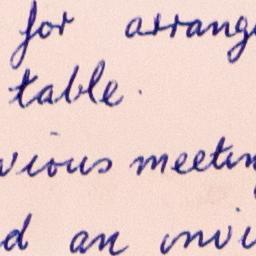 for arrange
table.
vious meeting
d an invi